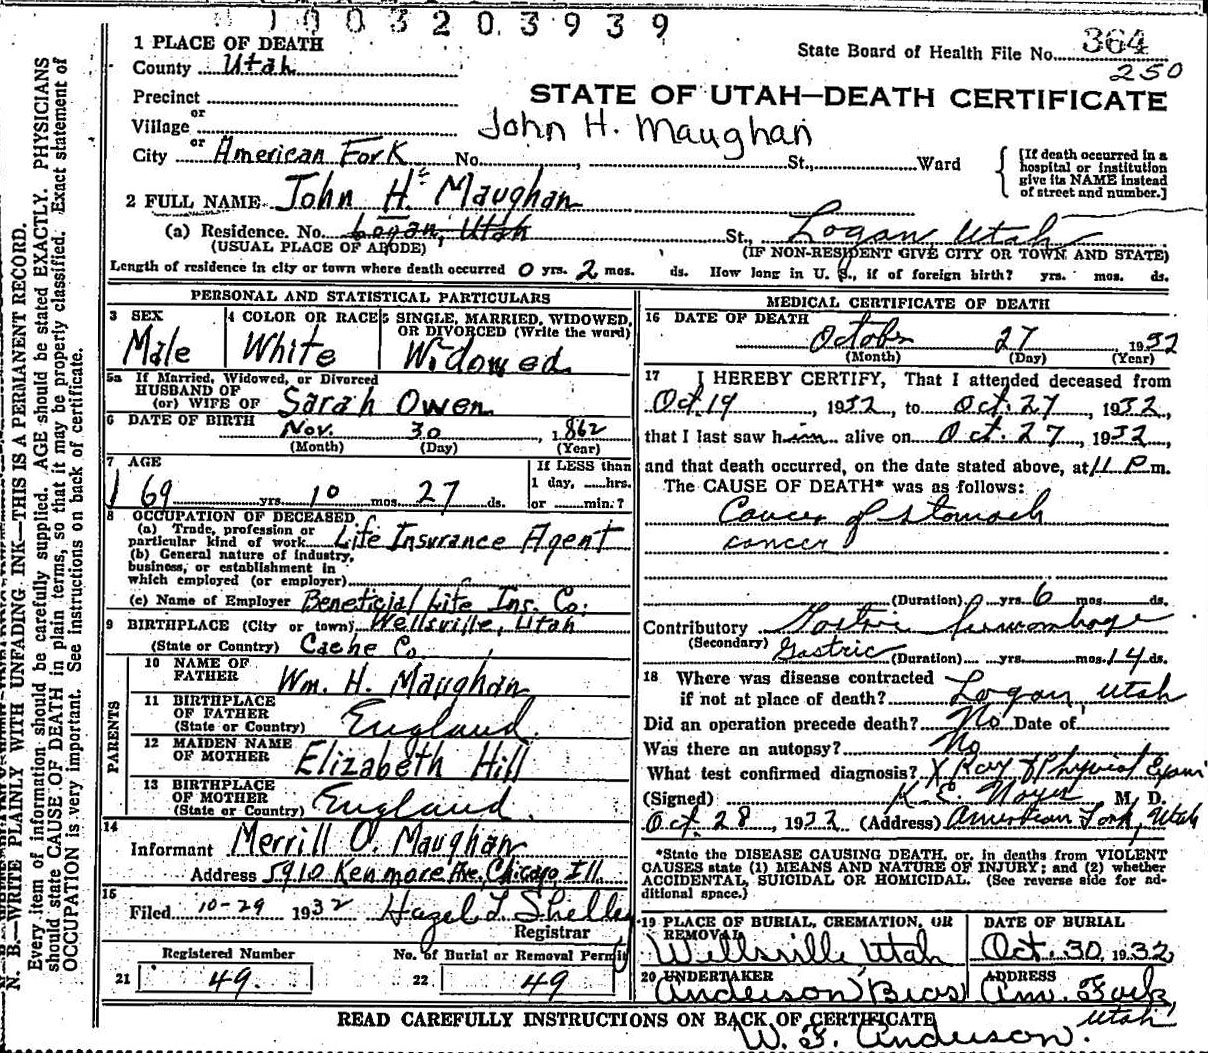 1003203939
1 PLACE OF DEATH
County Utah
State Board of Health File No. 364
250
Precinct
or
Village
STATE OF UTAH—DEATH CERTIFICATE
John H. Maughan
or
City American Fork No. , St., Ward
[If death occurred in a hospital or institution give its NAME instead of street and number.]
2 FULL NAME John H. Maughan
(a) Residence. No. Logan, Utah St., Logan Utah
(USUAL PLACE OF ABODE) (IF NON-RESIDENT GIVE CITY OR TOWN AND STATE)
Length of residence in city or town where death occurred 0 yrs. 2 mos. ds. How long in U. S., if of foreign birth? yrs. mos. ds.
PERSONAL AND STATISTICAL PARTICULARS
3 SEX
Male
4 COLOR OR RACE
White
5 SINGLE, MARRIED, WIDOWED, OR DIVORCED (Write the word)
Widowed
5a If Married, Widowed, or Divorced
HUSBAND OF
(or) WIFE OF Sarah Owen
6 DATE OF BIRTH Nov. 30, 1862
(Month) (Day) (Year)
7 AGE
69 yrs. 10 mos. 27 ds.
If LESS than
1 day, hrs.
or min.?
8 OCCUPATION OF DECEASED
(a) Trade, profession or
particular kind of work Life Insurance Agent
(b) General nature of industry,
business, or establishment in
which employed (or employer)
(c) Name of Employer Beneficial Life Ins. Co.
9 BIRTHPLACE (City or town) Wellsville, Utah
(State or Country) Cache Co.
PARENTS
10 NAME OF
FATHER Wm. H. Maughan
11 BIRTHPLACE
OF FATHER
(State or Country) England.
12 MAIDEN NAME
OF MOTHER Elizabeth Hill
13 BIRTHPLACE
OF MOTHER
(State or Country) England.
14
Informant Merrill O. Maughan
Address 5910 Kenmore Ave., Chicago Ill.
15
Filed 10-29 1932 Hazel L Shelley
Registrar
Registered Number
21 49.
No. of Burial or Removal Permit
22 49
MEDICAL CERTIFICATE OF DEATH
16 DATE OF DEATH
October 27, 1932
(Month) (Day) (Year)
17 I HEREBY CERTIFY, That I attended deceased from
Oct. 19, 1932, to Oct. 27, 1932,
that I last saw him alive on Oct. 27, 1932,
and that death occurred, on the date stated above, at 11 P m.
The CAUSE OF DEATH* was as follows:
Cancer of stomach
cancer
(Duration) yrs. 6 mos. ds.
Contributory Gastric
(Secondary) Gastric
(Duration) yrs. mos. 14 ds.
18 Where was disease contracted
if not at place of death? Logan, Utah
Did an operation precede death? No Date of
Was there an autopsy? No
What test confirmed diagnosis? X Ray & Physical Exam
(Signed) K. E. Noyes M. D.
Oct. 28, 1932 (Address) American Fork, Utah
*State the DISEASE CAUSING DEATH, or, in deaths from VIOLENT
CAUSES state (1) MEANS AND NATURE OF INJURY; and (2) whether
ACCIDENTAL, SUICIDAL OR HOMICIDAL. (See reverse side for ad-
ditional space.)
19 PLACE OF BURIAL, CREMATION, OR
REMOVAL
Wellsville Utah
DATE OF BURIAL
Oct. 30, 1932,
20 UNDERTAKER
Anderson Bros
ADDRESS
Am. Fork,
Utah
READ CAREFULLY INSTRUCTIONS ON BACK OF CERTIFICATE
W. F. Anderson.
N. B.—WRITE PLAINLY WITH UNFADING INK—THIS IS A PERMANENT RECORD.
Every item of information should be carefully supplied. AGE should be stated EXACTLY. PHYSICIANS
should state CAUSE OF DEATH in plain terms, so that it may be properly classified. Exact statement of
OCCUPATION is very important. See instructions on back of certificate.